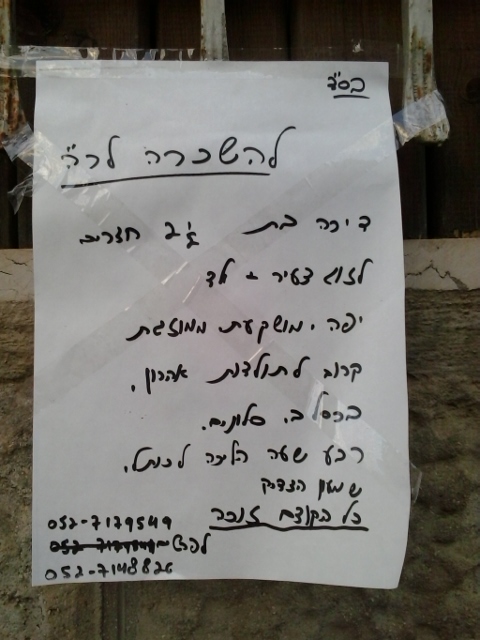 בס"ד
להשכרה לר"ה
דירה בת 2½ חדרים
לזוג צעיר + ילד
יפה, מושקעת ממוזגת
קרוב לתולדות אהרון,
ב. סלונים.
רבע שעה הליכה לכותל,
שמעון הצדיק
כל הקודם זוכה
052-7179549
052-7148826